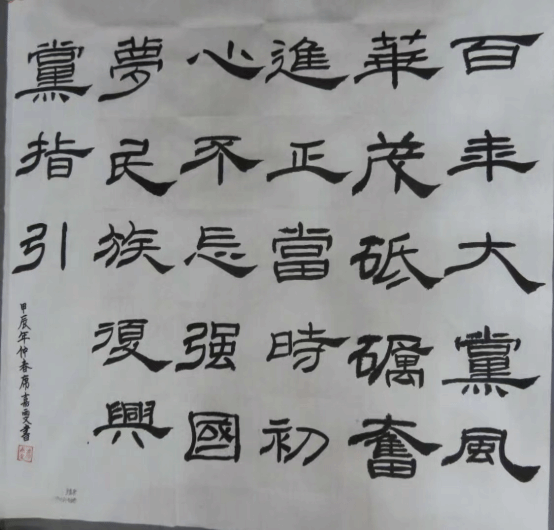 百年大黨風
華茂砥礪奮
進正當時初
心不忘强國
夢民族復興
黨指引
甲辰年仲春席嘉雯書